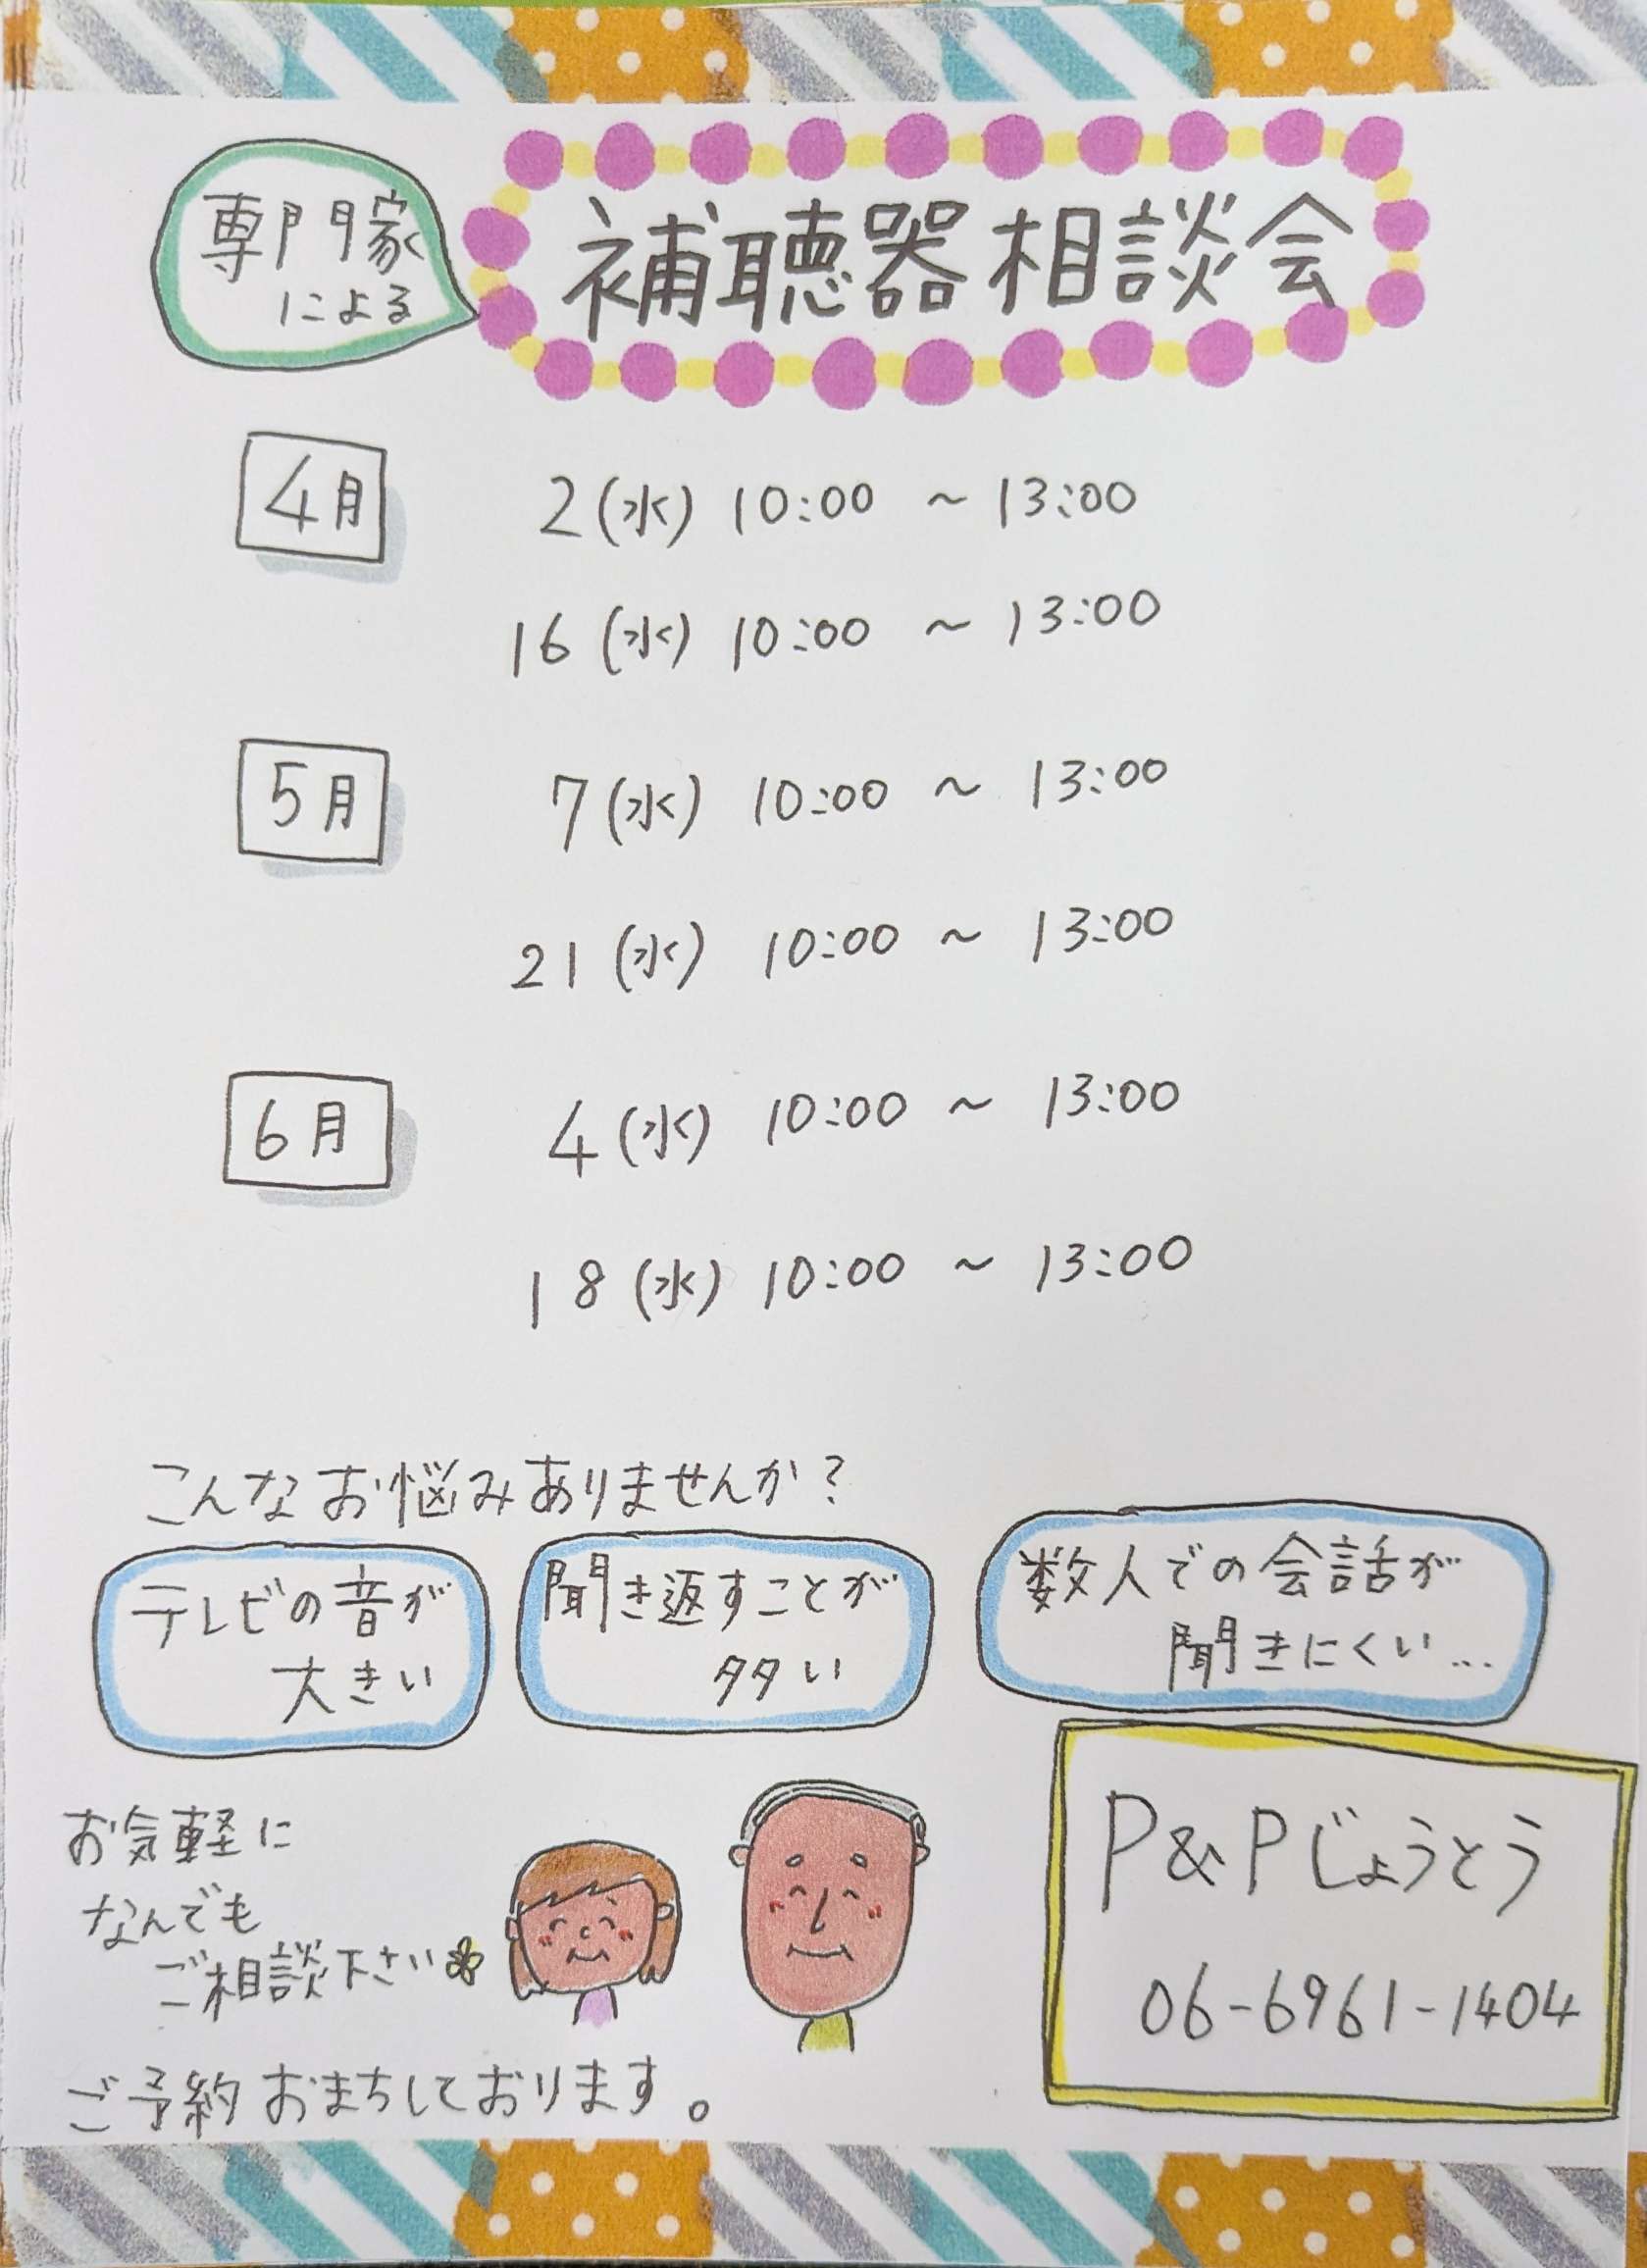 専門家
による
補聴器相談会
4月
2(水) 10:00 ～ 13:00
16(水) 10:00 ～ 13:00
5月
7(水) 10:00 ～ 13:00
21(水) 10:00 ～ 13:00
6月
4(水) 10:00 ～ 13:00
18(水) 10:00 ～ 13:00
こんなお悩みありませんか?
テレビの音が
大きい
聞き返すことが
多い
数人での会話が
聞きにくい…
お気軽に
なんでも
ご相談下さい
P&Pじょうとう
06-6961-1404
ご予約おまちしております。